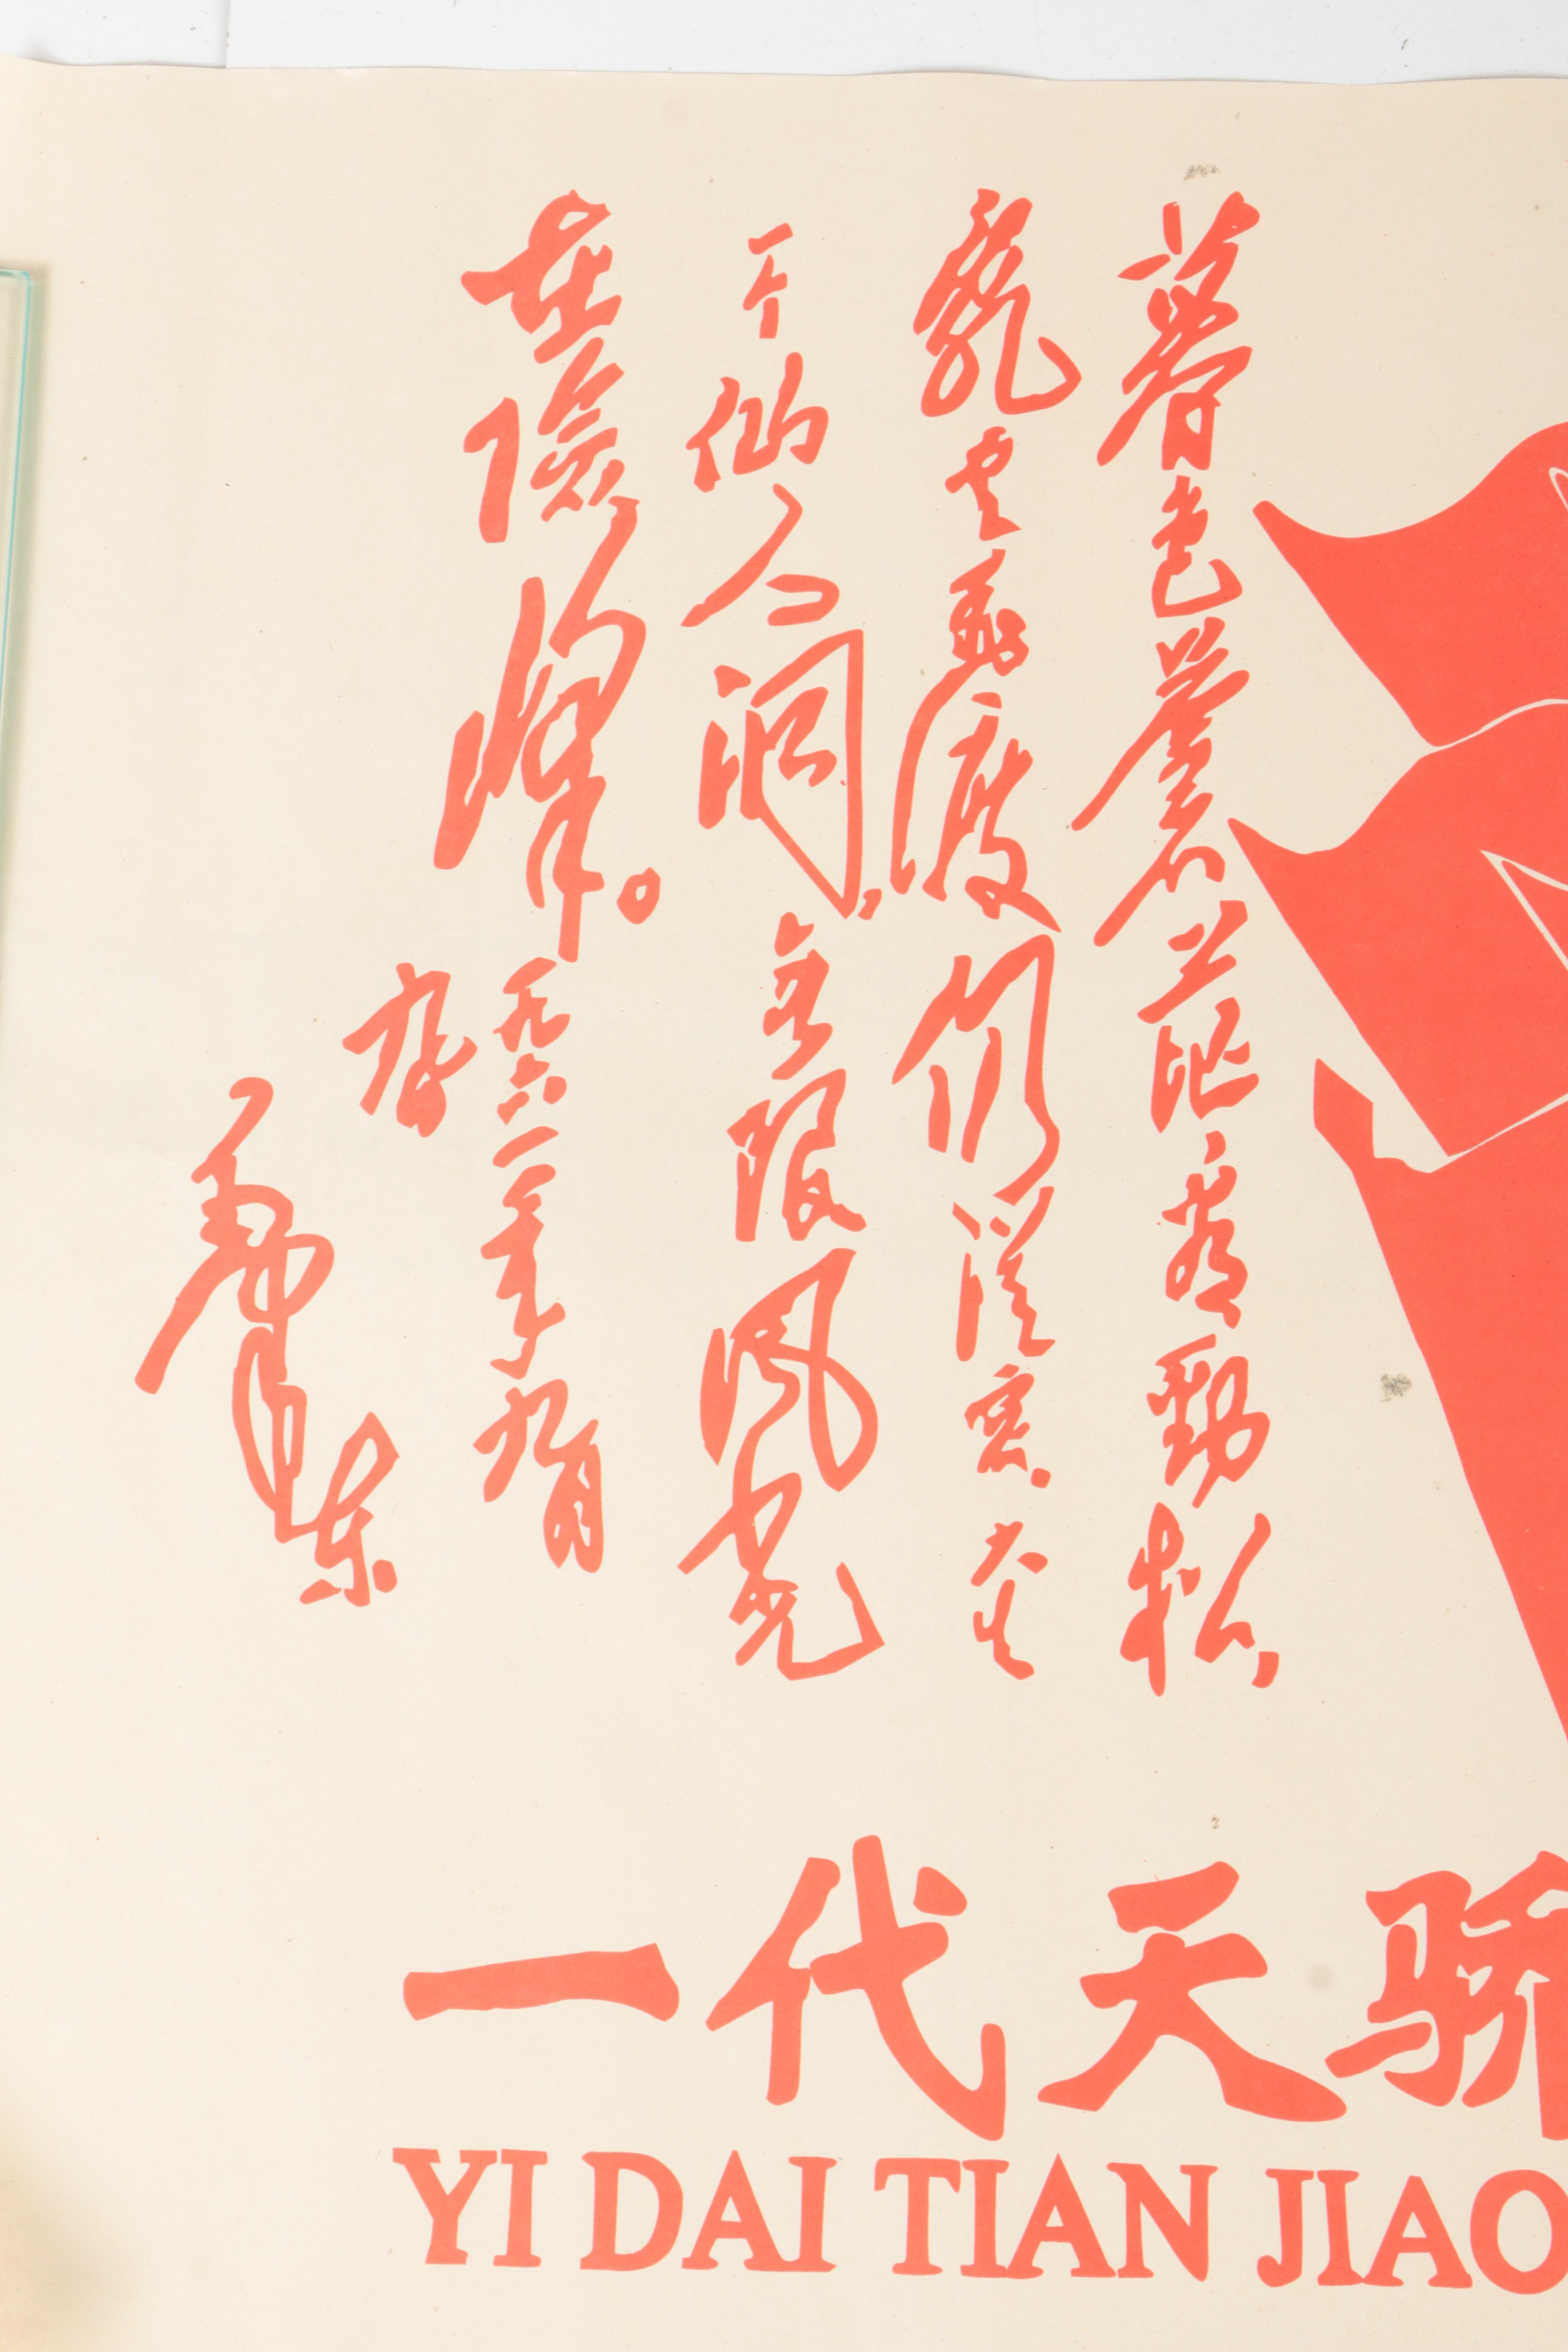 暮色苍茫看劲松，
乱云飞渡仍从容。天生
一个仙人洞，无限风光
在险峰。一九六一年九月
毛泽东
一代天骄
YI DAI TIAN JIAO